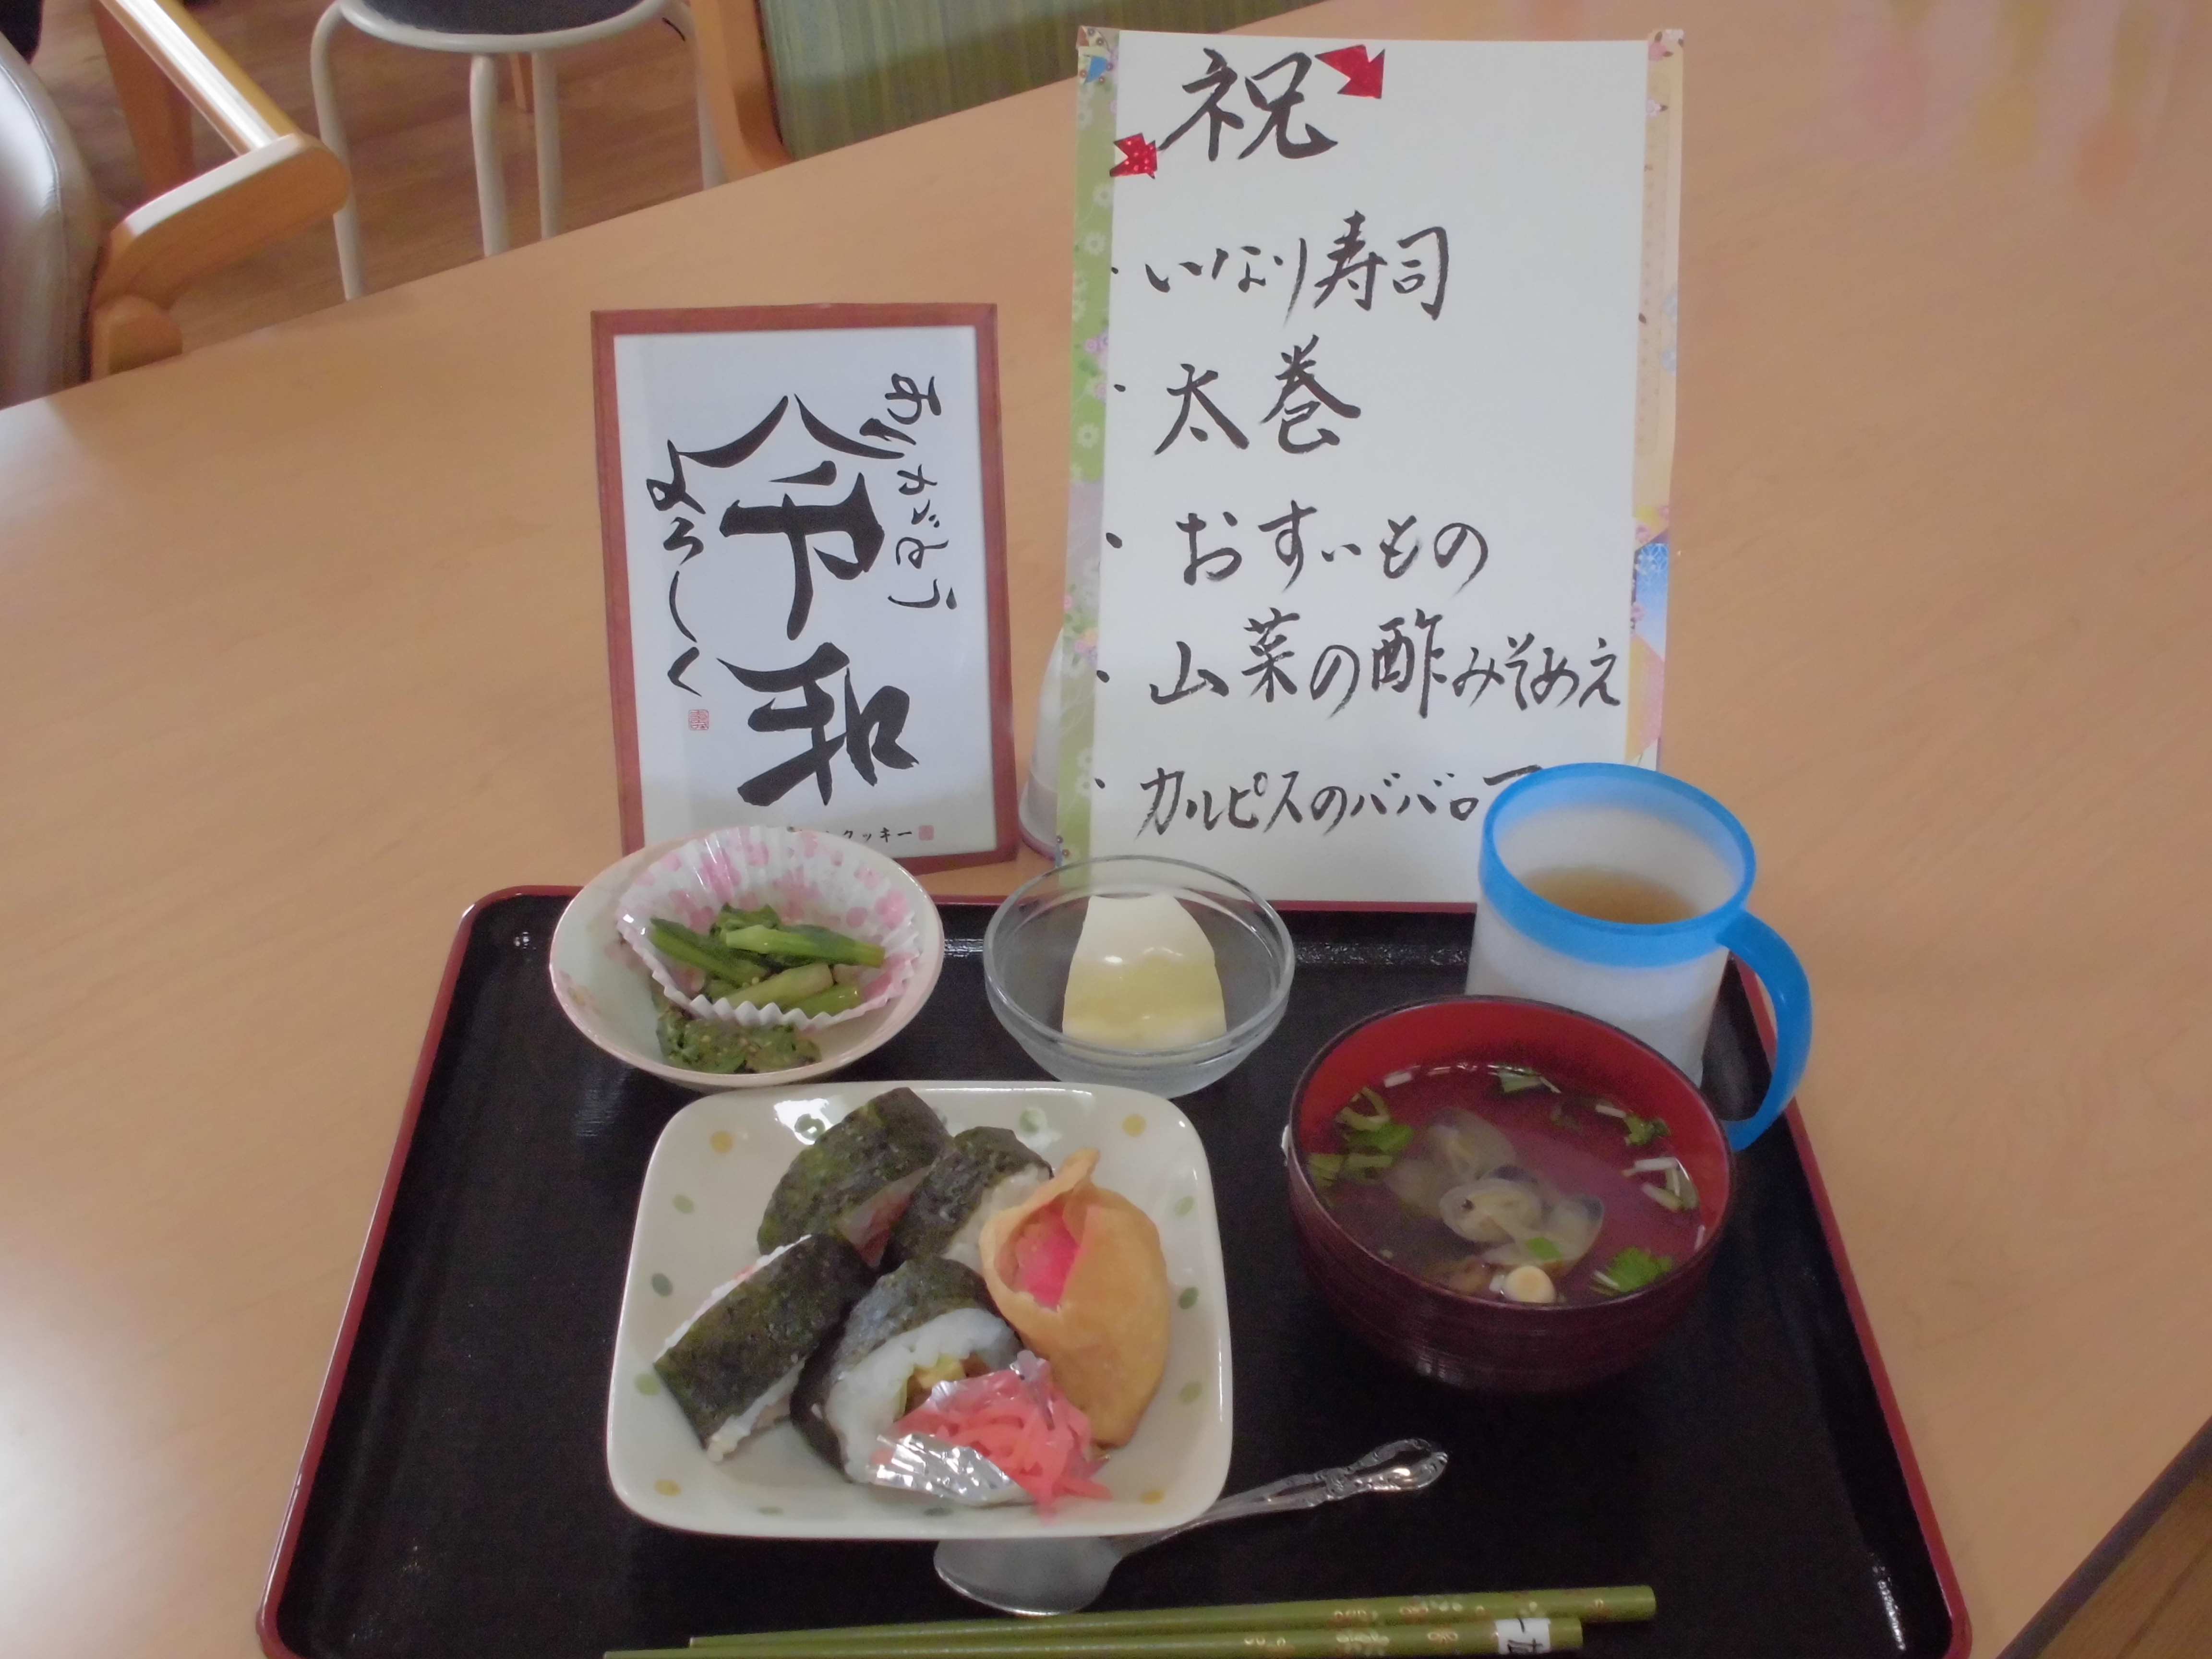 祝
・いなり寿司
・太巻
・おすいもの
・山菜の酢みそあえ
・カルピスのババロア
ありがとう
令和
よろしく
クッキー